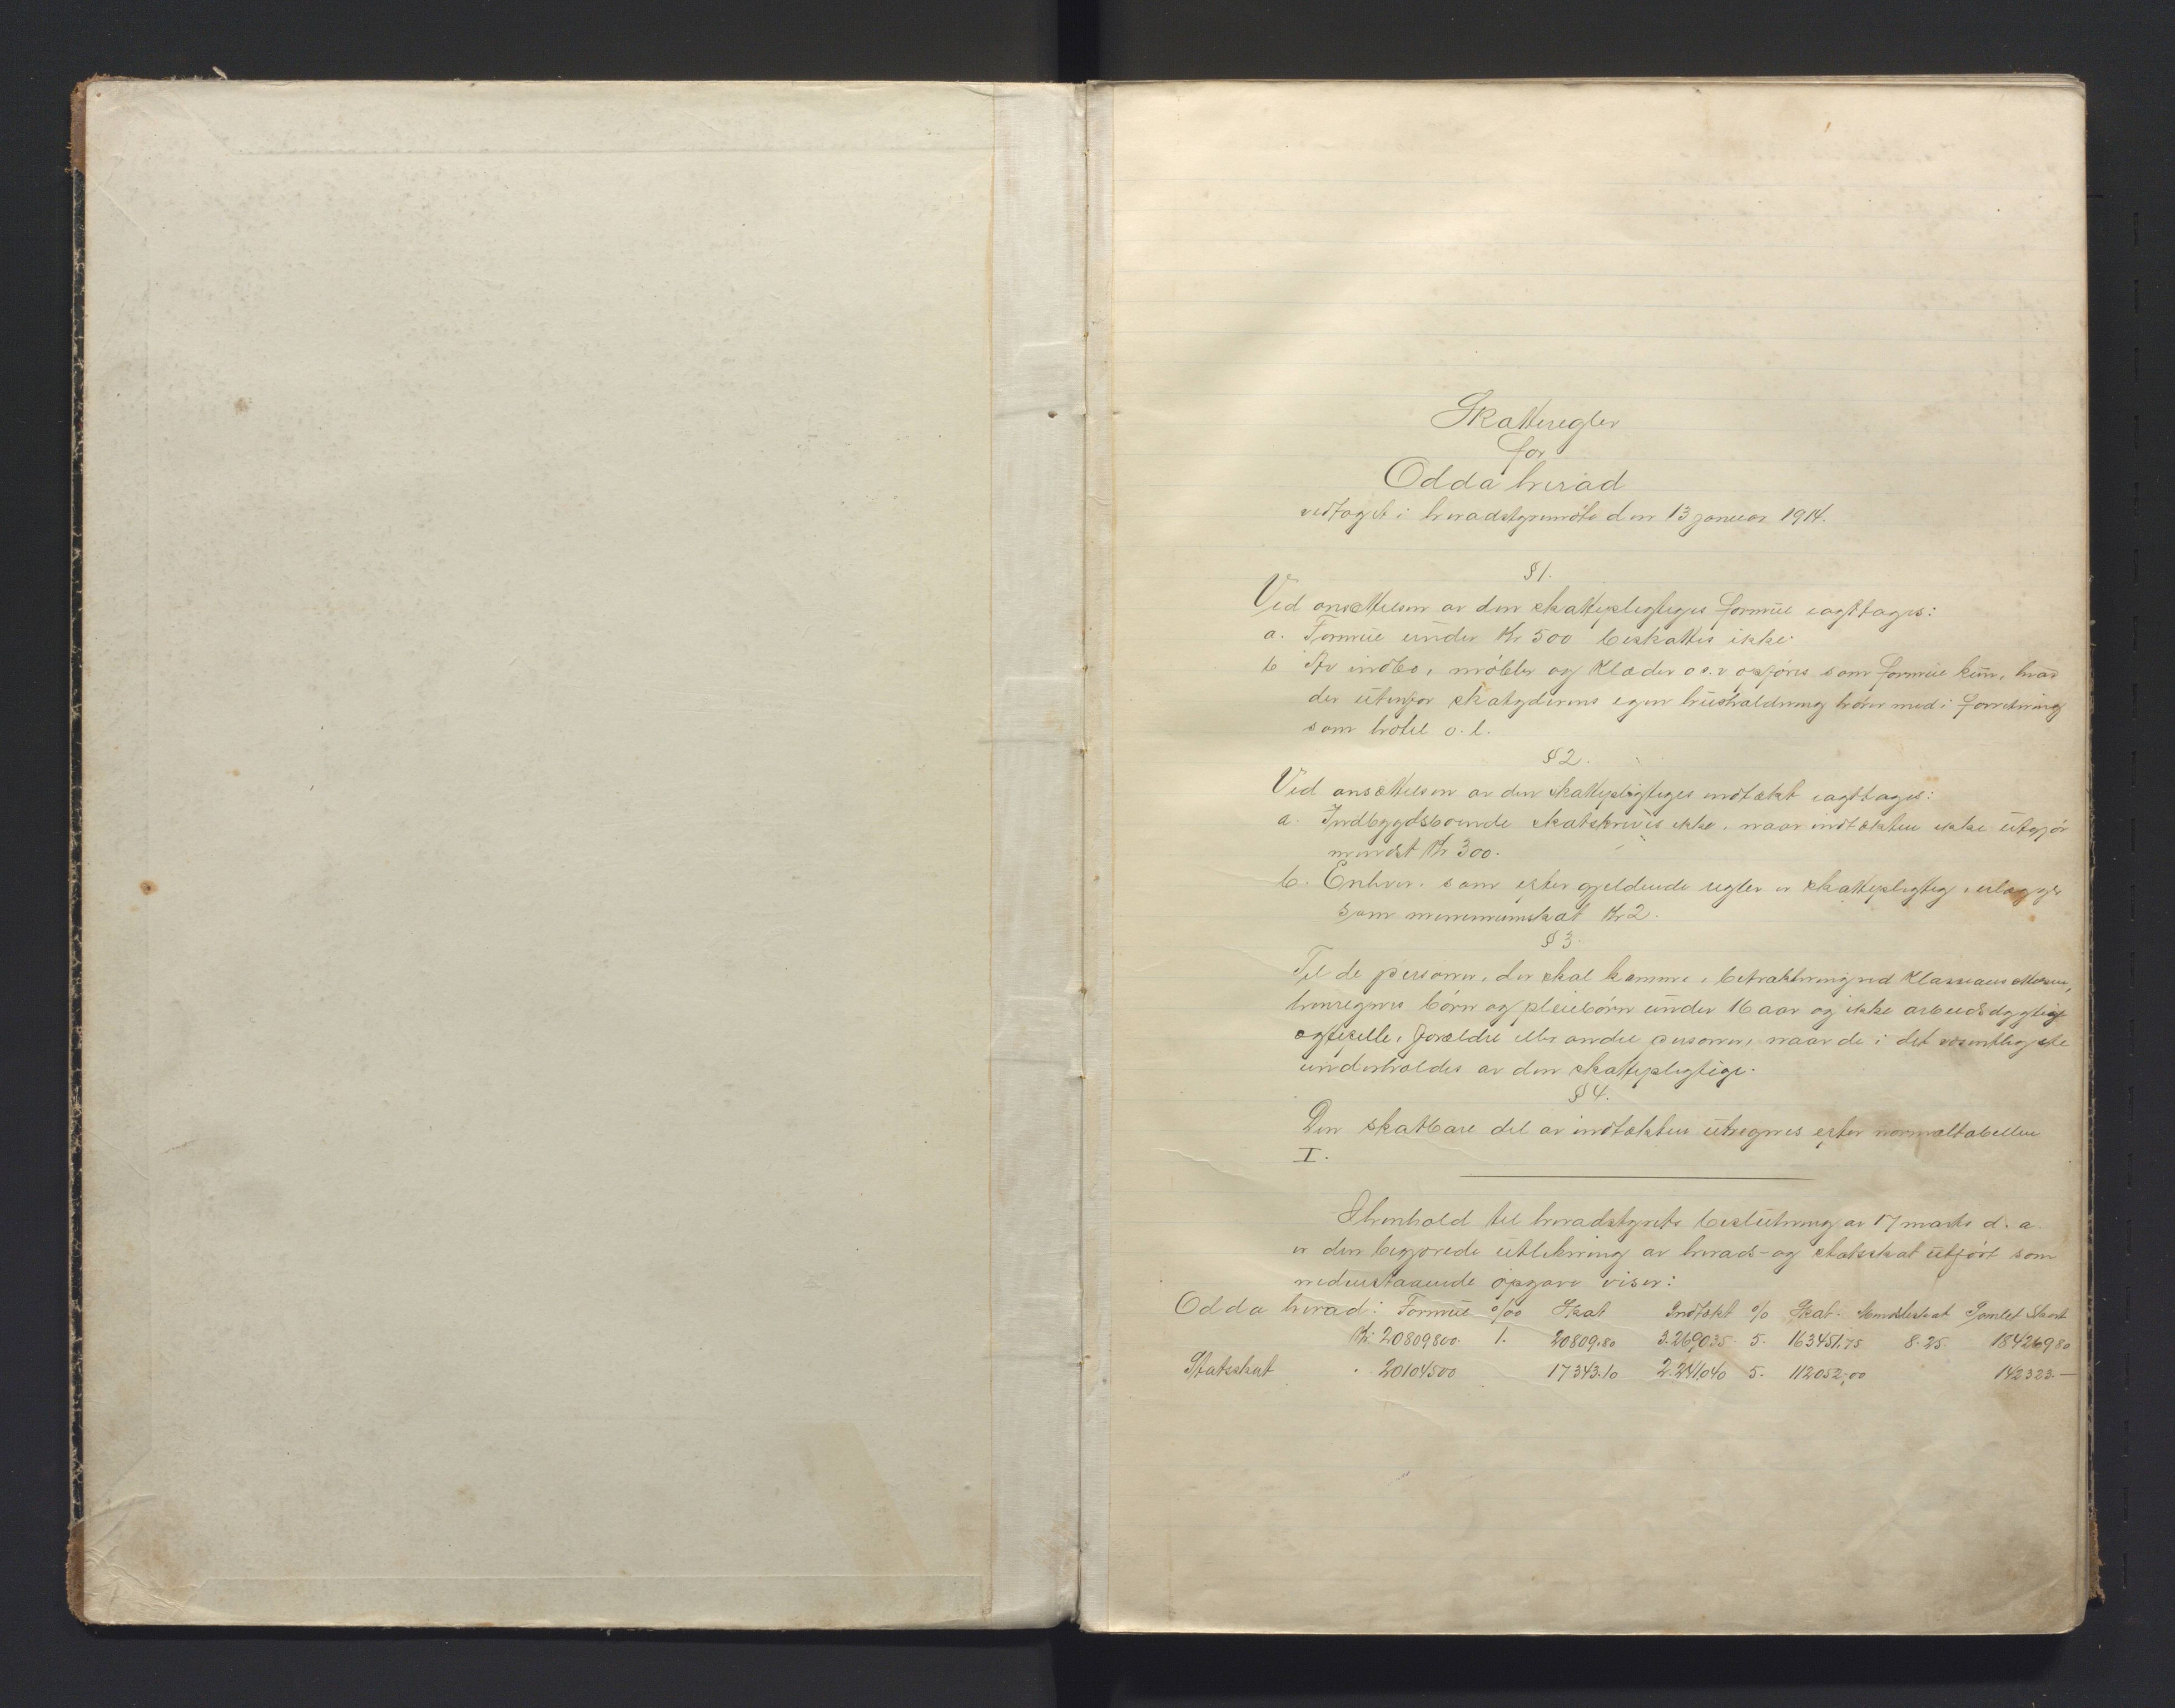 Skatteregler
for
Odda herad
vedtaget i heradstyremöte den 13 januar 1914.
§ 1.
Ved ansættelsen av den skattepligtiges formue iagttages:
a. Formue under Kr 500 beskattes ikke.
b Av indbo, möbler og Klæder o s. v opføres som formue kun, hvad
der utenfor skatyderens egen husholdning hörer med i forretning
som hotel o. l.
§ 2.
Ved ansættelsen av den skattepligtiges indtækt iagttages:
a. Indbygdsboende skatskrives ikke, naar indtækten ikke utgjör
mindst Kr 300.
b. Enhver, som efter gjeldende regler er skattepligtig, ilægges
som minimumskat Kr 2.
§ 3
Til de personer, der skal komme i betraktning ved Klasseansættelsen,
henregnes börn og pleiebörn under 16 aar og ikke arbeidsdygtig
ægtefelle, forældre eller andre personer, naar de i det væsentligste
underholdes av den skattepligtige.
§ 4.
Den skatbare del av indtækten utregnes efter normaltabellen
I.
I henhold til heradstyrets beslutning av 17 marts d. a.
er den begjærede utlikning av herads- og statsskat utført som
nedenstaaende opgave viser:
Odda herad: Formue o/oo Skat Indtækt o/o Skat. Mindsteskat Samlet Skat
Kr. 20809800. 1. 20809.80 3.269035. 5. 163451.75 8.25. 184269 80
Statsskat " 20104500 17343.10 2.241,040 5. 112052,00 142323.—